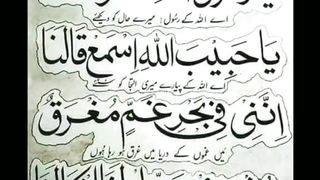 اے اللہ کے رسول! میرے حال کو دیکھئے
يَا حَبِيْبَ اللّٰهِ اِسْمَعْ قَالَنَا
اے اللہ کے پیارے میری التجا کو سنئے
اِنَّنِيْ فِيْ بَحْرِ غَمٍّ مُغْرَقٌ
میں غموں کے دریا میں غرق ہو رہا ہوں